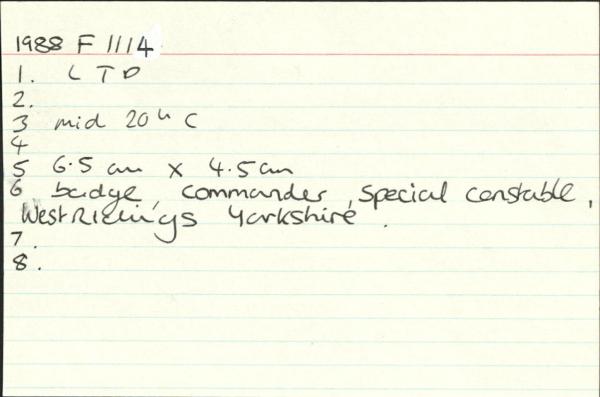 1988 F 1114
1. L T D
2.
3 mid 20th C
4
5 6.5 cm x 4.5 cm
6 badge, commander, special constable,
West Ridings Yorkshire.
7.
8.